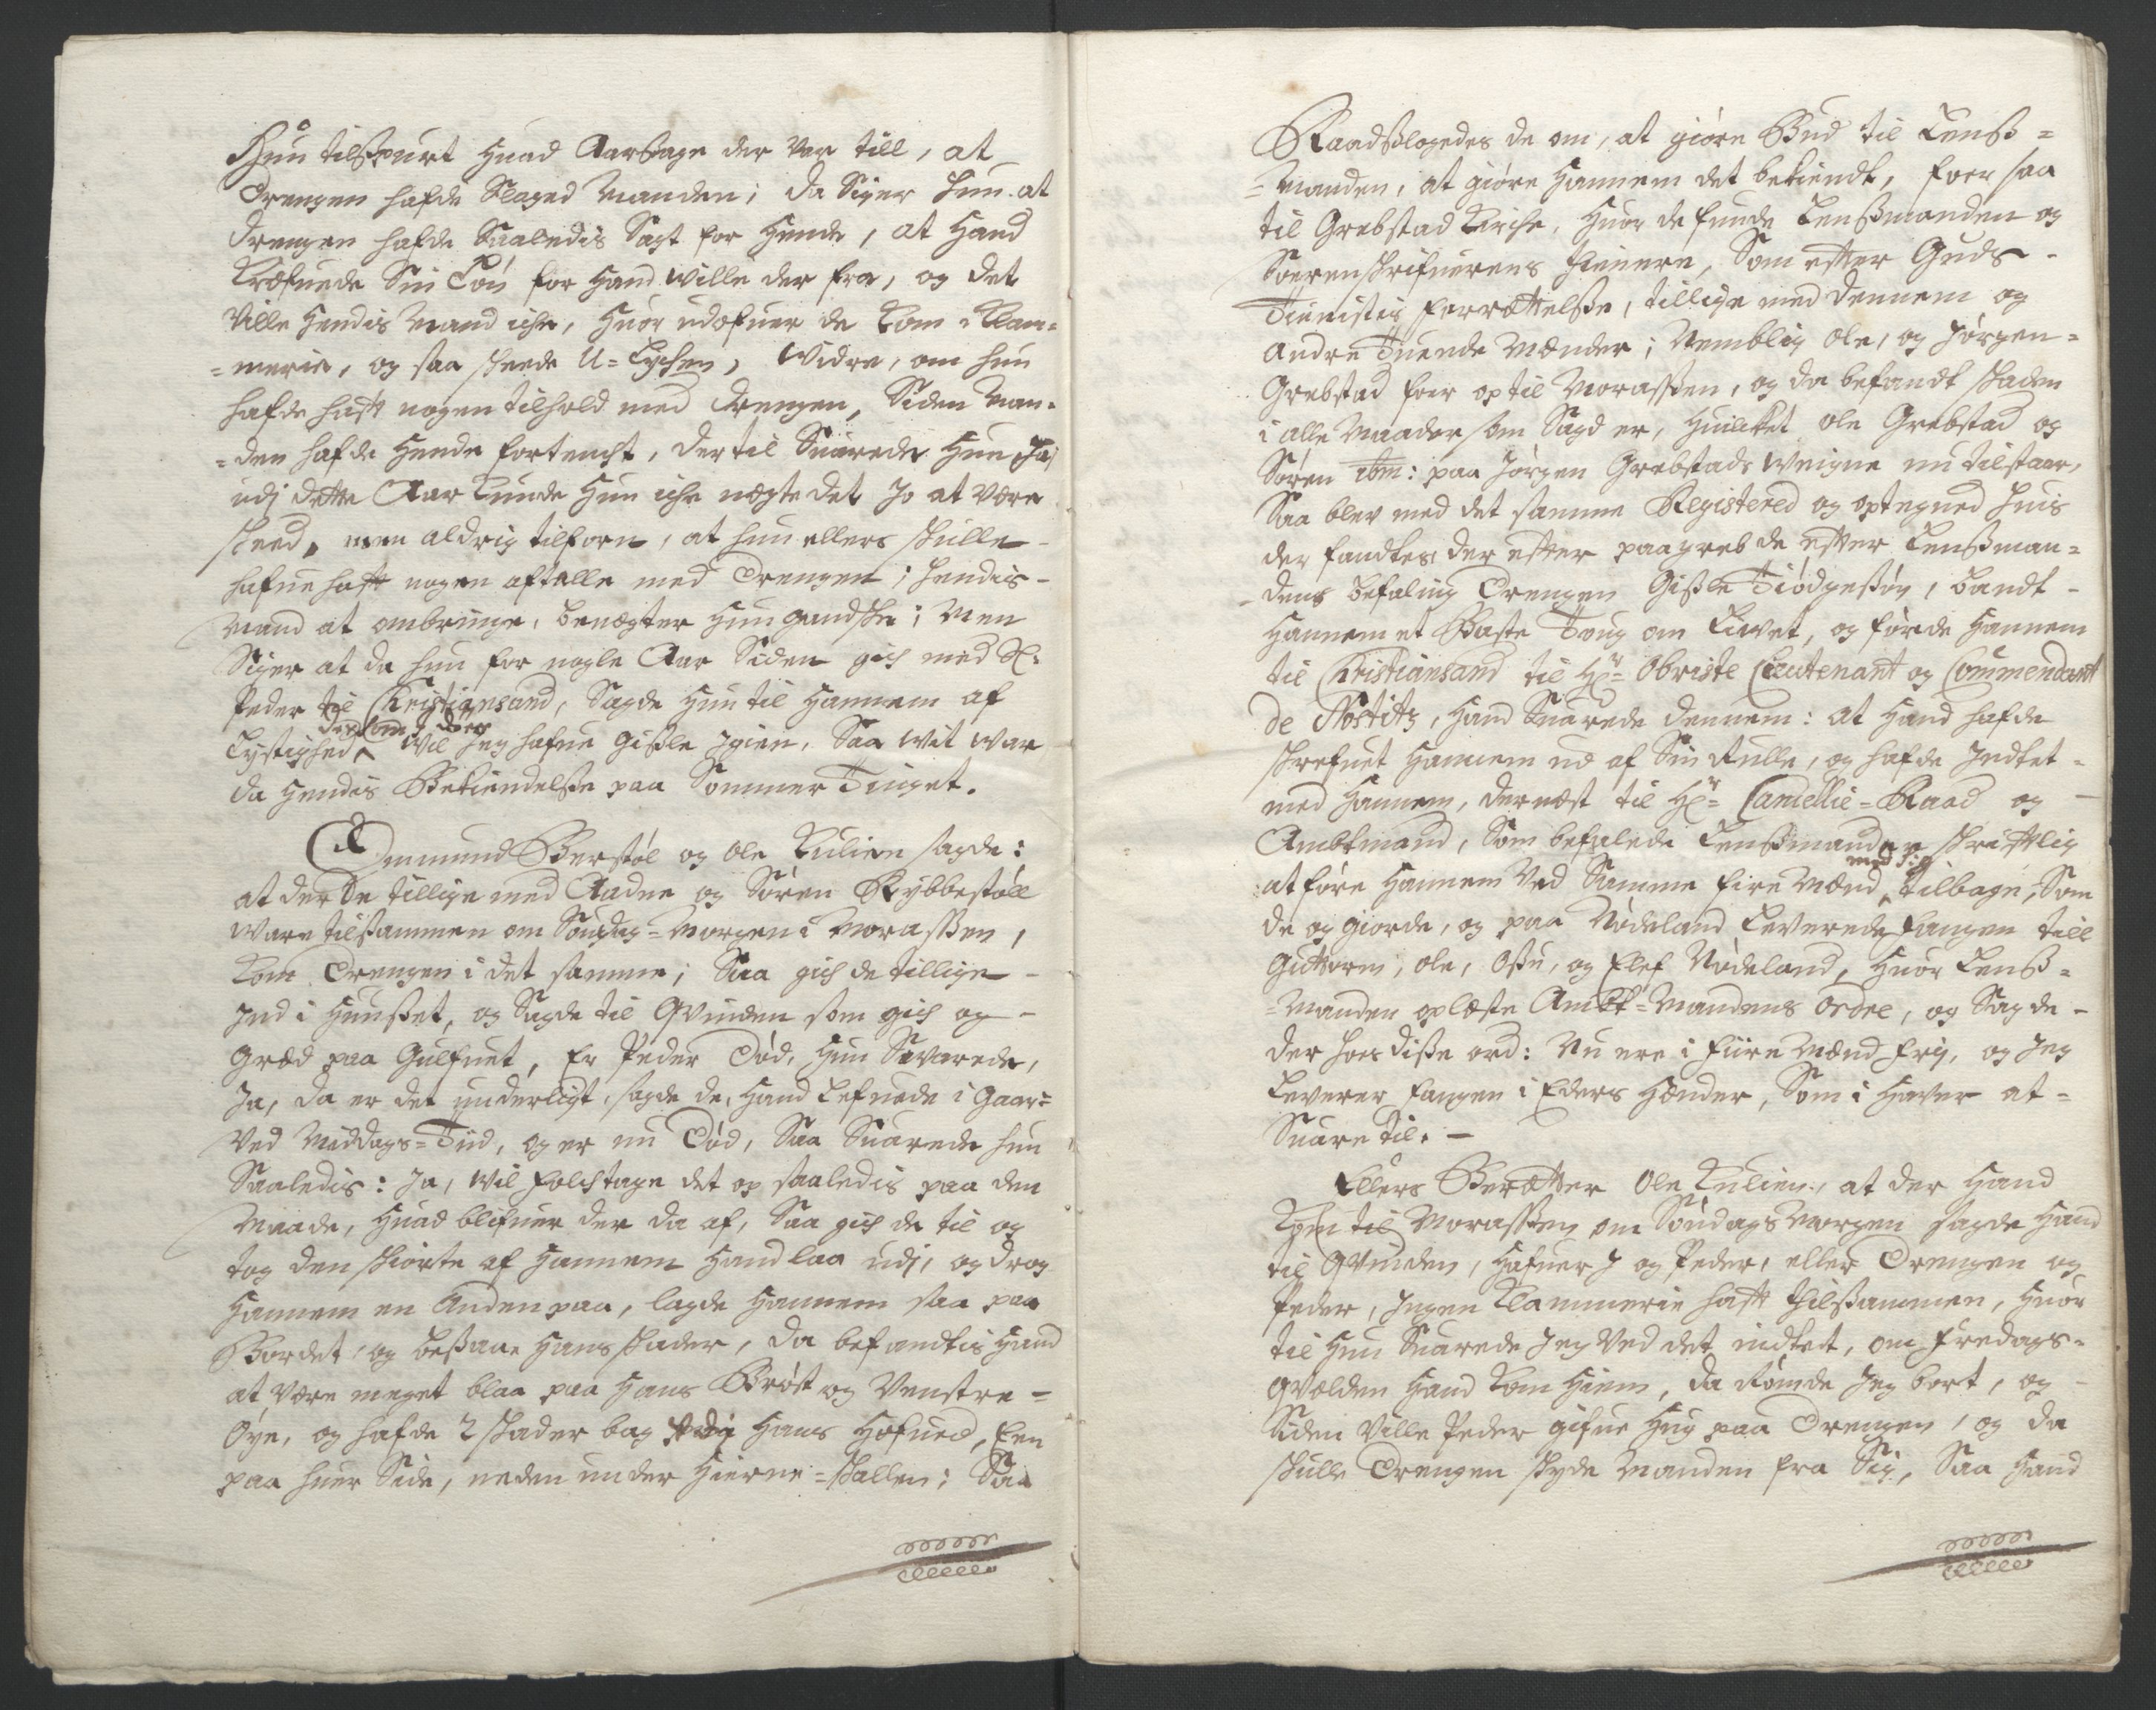 Hun tilspurt Huad Aarsage der var till, at
Drengen hafde Slaged Manden; da Siger Hun at
Drengen hafde Saaledis Sagt for Hende, at Hand
Kræfuede Sin Løn for Hand wille der fra, og det
Ville Hendis Mand iche, Huor udofuer de Kom i Klam-
=merie, og saa skeede U=Lychen, Widre, om hun
hafde hafft nogen tilhold med Drengen, Siden Man-
=den hafde Hende fortencht, der til Suarede Hun Ja,
udj dette Aar Kunde Hun iche negte det Jo at være
skeed, men aldrig tilforn, at hun ellers skulle
hafue hafft nogen aftalle med Drengen; hendis
Mand at ombringe, benægter Hun gandske; Men
Siger at da hun for nogle Aar Siden gich med Sl:
Peder til Christiansand, Sagde Hun til Hannem af
der som i dør
Lystighed wil Jeg hafue Gisle igien. Saa wit war
da Hendis Bekiendelsse paa Sommer Tinget.
Emmund Berstøl og Ole Kulien sagde:
at der de tillige med Aadne og Søren Rybbestøll
ware tilsammen om Søndag=Morgen i Morassen,
Kom Drengen i det samme; Saa gich de tillige
Ind i Huusset, og Sagde til Qvinden som gich og
græd paa Gulfuet, Er Peder Død, Hun Svarede,
Ja, da er det underligt, sagde de, Hand Lefuede i Gaar
Ved Middags=Tiid, og er nu Død, Saa Suarede hun
Saaledis: Ja, Wil folch tage det op saaledis paa den
Maade, Huad blifuer der da af, Saa gich de til og
tog den skiorte af Hannem Hand laa udj, og drog
Hannem en Anden paa, lagde Hannem saa paa
Bordet, og besaae Hans skader, da befandtis Hand
at være meget blaa paa Hans Brøst og Venstre
Øye, og hafde 2 skader bag Hans Hofued, Een
paa huer Side, neden under Hierne=skallen; Saa
Raadslogedes de om, at giøre Bud til Lenss=
=Manden, at giøre Hannem det bekiendt, foer saa
til Grebstad Kirche, Huor de funde Lenssmanden og
Sorenskrifuerens tienere, Som efter Guds-
Tienistis forrættelsse, tillige med dennem og
andre Tuende Mænder; Nemblig Ole, og Jørgen
Grebstad foer op til Morassen, og da befandt skaden
i alle Maader som Sagd er, Huilket Ole Grebstad og
Søren ibm: paa Jørgen Grebstads Weigne nu tilstaar,
Saa blev med det samme Registered og optegned huis
der fandtes, der efter paagreb de efter Lenssman=
dens befaling Drengen Gisle Tiødgessøn, bandt
Hannem et Baste Toug om Livet, og førde Hannem
til Christiansand til Hr= Obriste Lieutenant og Commendant
de Nostitz, Hand Suarede dennem: at Hand hafde
skrefuet Hannem ud af Sin Rulle, og hafde Indtet
med Hannem, dernæst til Hr= Cancellie=Raad og
Ambtmand, Som befalede Lenssmanden skrifftlig
med sig
at føre Hannem Ved Samme fire Mænd tilbage, Som
de og giorde, og paa Nødeland Leverede fangen till
Guttorm, Ole, Osse, og Elef Nødeland, Huor Lenss=
=Manden oplæste Ambt=Mandens Ordre, og Sagde
der hos disse ord: Nu ere i fiire Mænd frij, og Jeg
Leverer fangen i Eders Hænder, Som i Haver at
Suare til.
Ellers Beretter Ole Kulien, at der Hand
Kom til Morassen om Søndags Morgen sagde Hand
til Qvinden, Hafuer I og Peder, eller Drengen og
Peder, Ingen Klammerie hafft tilsammen, Huor
til Hun Suarede Jeg Ved det indtet, om Fredags=
Qvælden Hand Kom Hiem, da Rømde Jeg bort, og
Siden Ville Peder gifue Hug paa Drengen, og da
skulle Drengen skyde Manden fra Sig, Saa Hand